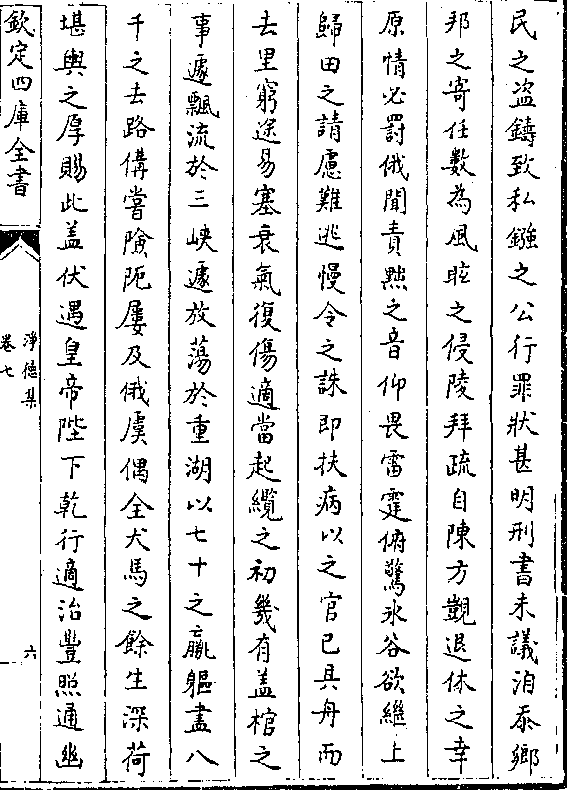 民之盗鑄致私鏹之公行罪狀甚明刑書未議洎忝鄉
邦之寄任數為風眩之侵陵拜疏自陳方覬退休之幸
原情必罰俄聞責黜之音仰畏雷霆俯驚氷谷欲繼上
歸田之請慮難逃慢令之誅即扶病以之官已具舟而
去里窮途易塞衰氣復傷適當起纜之初幾有盖棺之
事遽飄流於三峽遽放蕩於重湖以七十之羸軀盡八
千之去路備嘗險阨屢及俄虞偶全犬馬之餘生深荷
堪輿之厚賜此盖伏遇皇帝陛下乾行適治豐照通幽
欽定四庫全書
淨德集
卷七
六